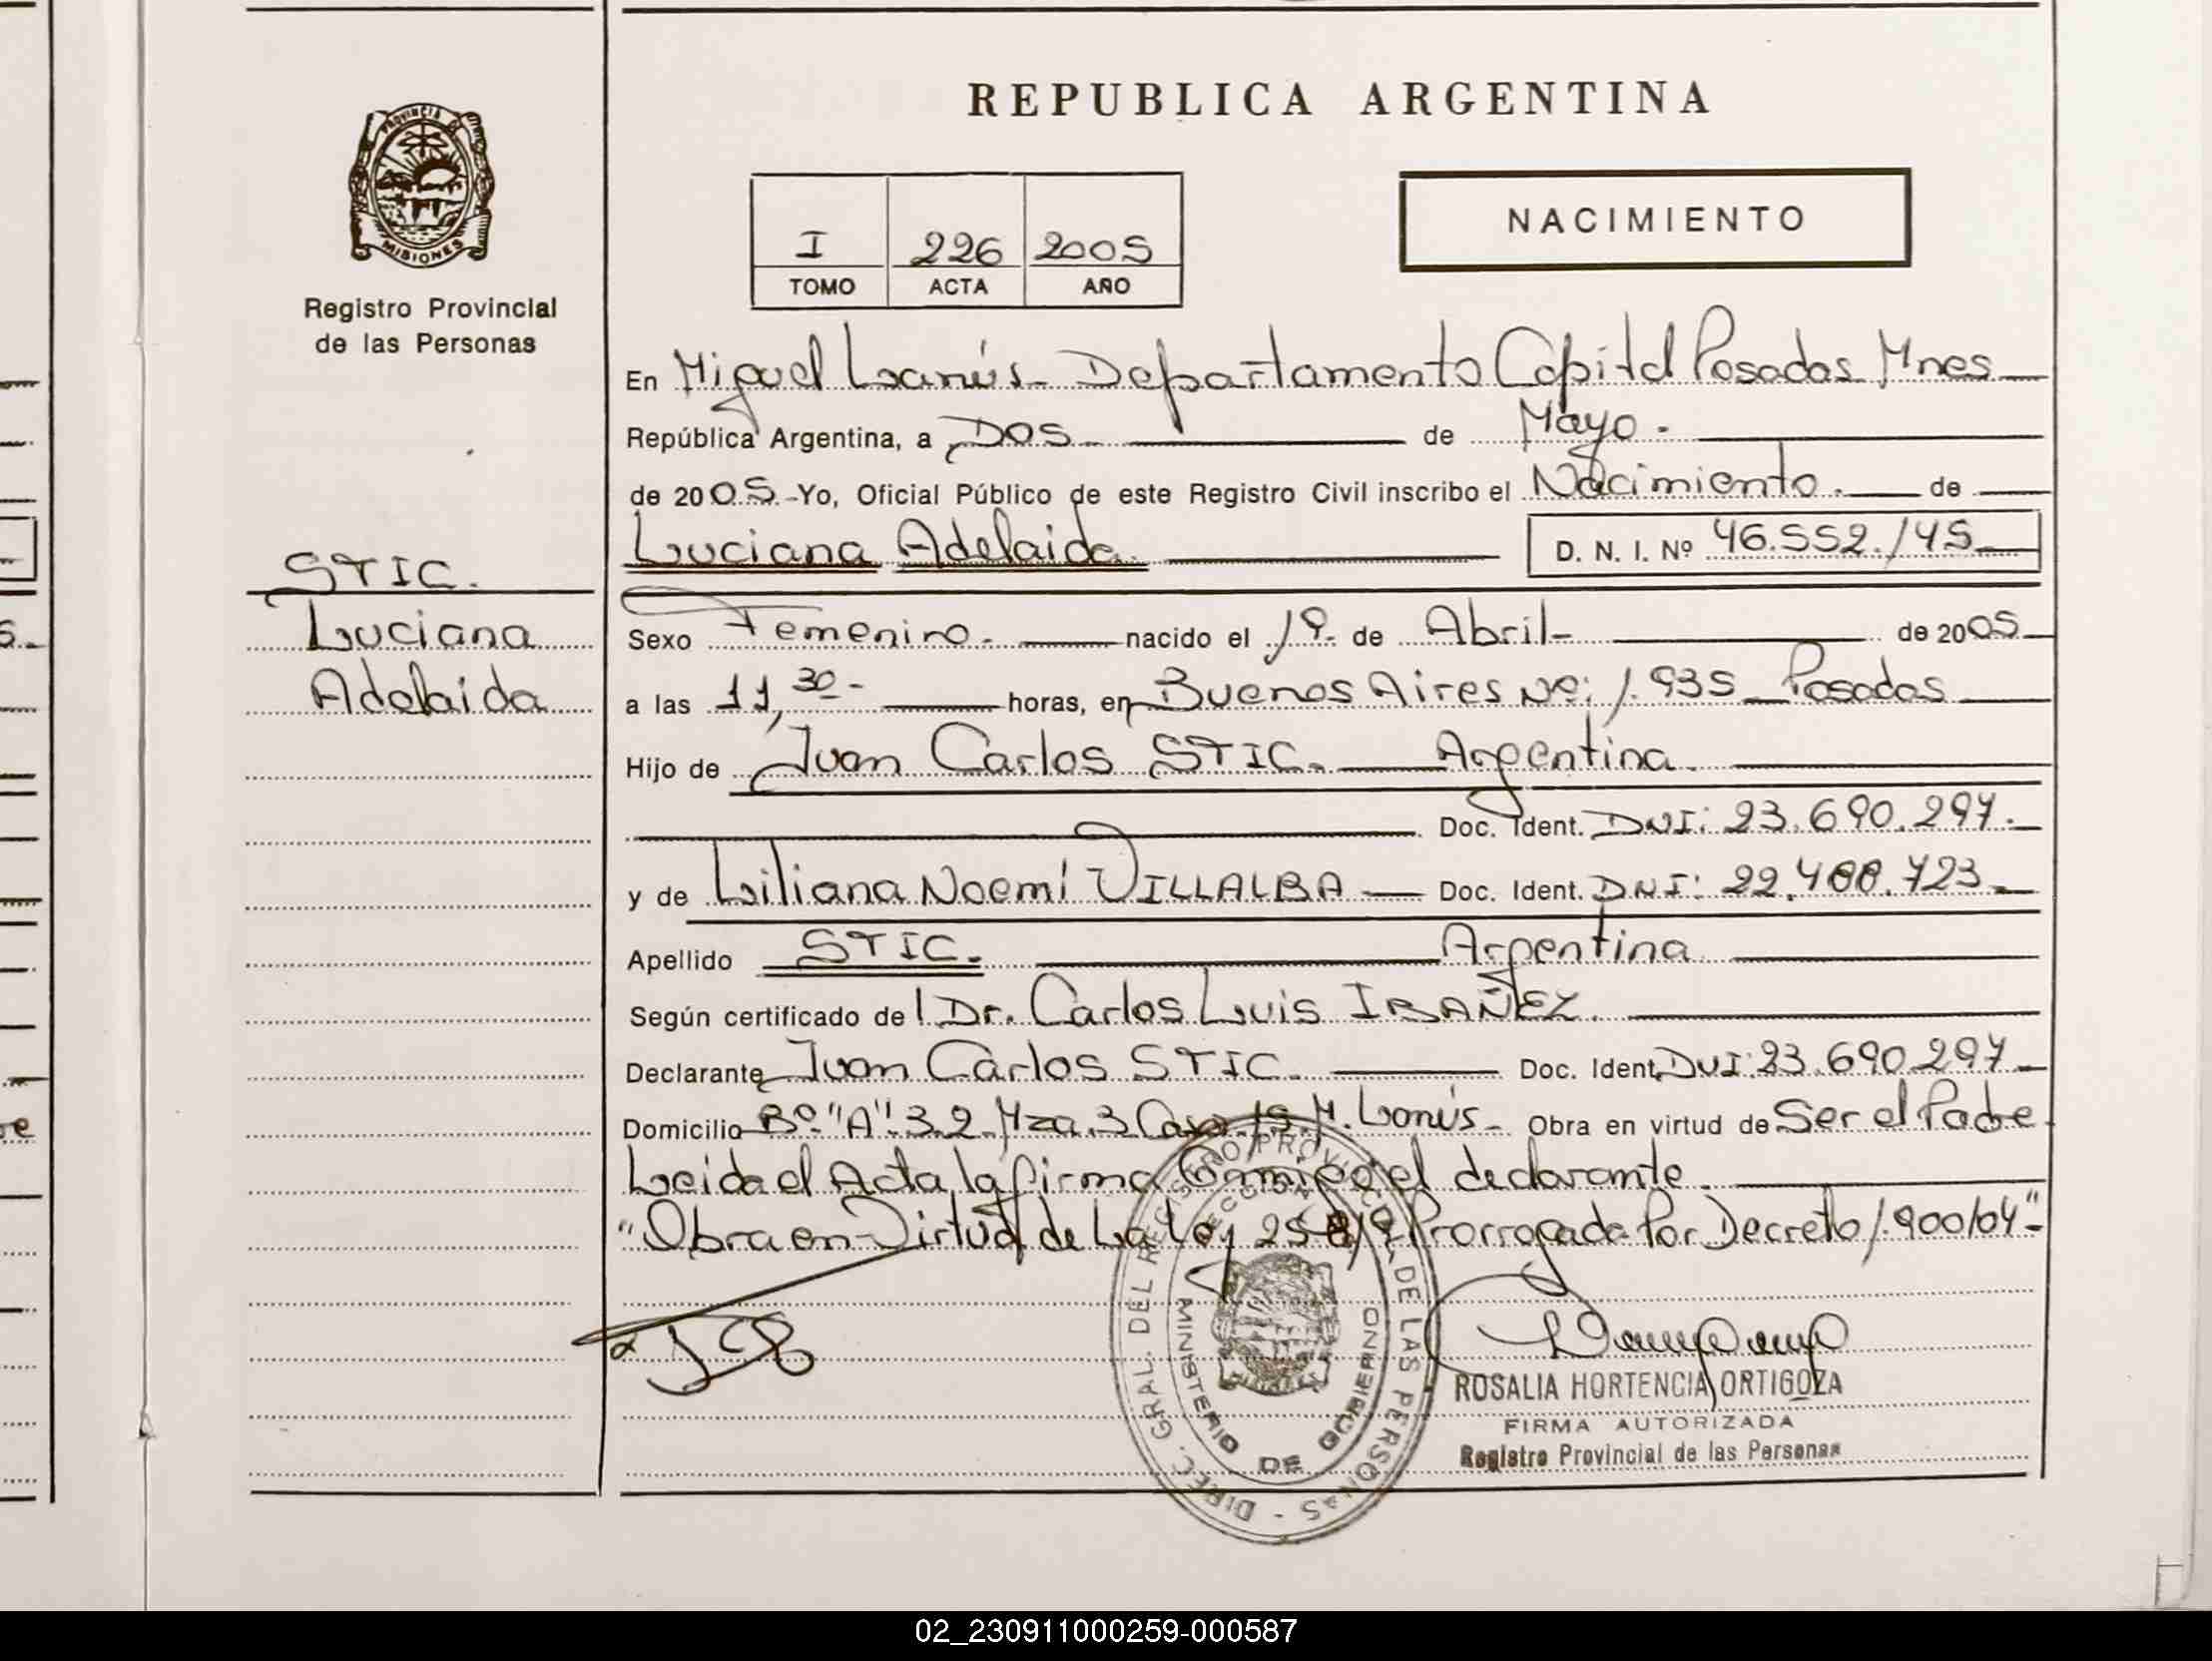 REPUBLICA ARGENTINA
PROVINCIA DE
MISIONES
Registro Provincial
de las Personas
I 226 2005
TOMO ACTA AÑO
NACIMIENTO
En Miguel Lanús - Departamento Capital Posadas Mnes
República Argentina, a DOS de Mayo.
de 2005 - Yo, Oficial Público de este Registro Civil inscribo el Nacimiento. de
Luciana Adelaida.
D. N. I. Nº 46.552.145
STIC.
Luciana
Adelaida
Sexo Femenino. nacido el 19. de Abril de 2005
a las 11,30- horas, en Buenos Aires Nº: 1.935 Posadas
Hijo de Juan Carlos STIC. Argentina.
Doc. Ident. DNI: 23.690.297.
y de Liliana Noemí VILLALBA Doc. Ident. DNI: 22.400.723
Apellido STIC. Argentina
Según certificado del Dr. Carlos Luis IBAÑEZ.
Declarante Juan Carlos STIC. Doc. Ident. DNI: 23.690.297
Domicilio Bº "A" 3.2 Mza. 3 Casa 15. M. Lanús - Obra en virtud de Ser el Padre.
Leida el Acta, la firma Conmigo el declarante.
"Obra en Virtud de La Ley 25.819 Prorrogada Por Decreto 1.900/04"
DIREC. GRAL. DEL REGISTRO PROVINCIAL DE LAS PERSONAS
MINISTERIO DE GOBIERNO
ROSALIA HORTENCIA ORTIGOZA
FIRMA AUTORIZADA
Registro Provincial de las Personas
02_230911000259-000587